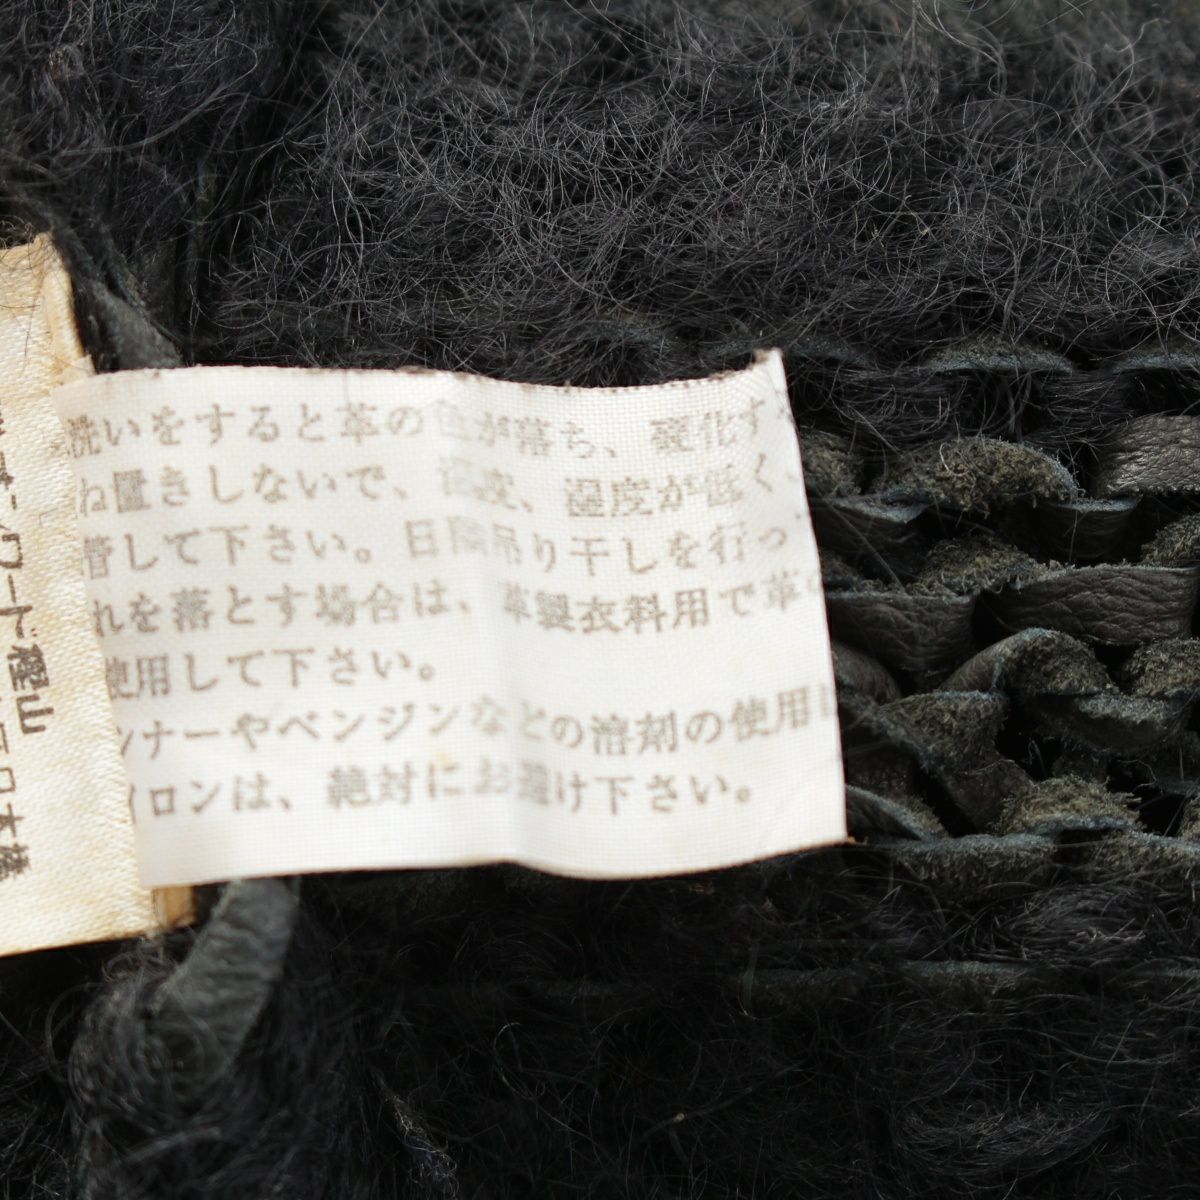 洗いをすると革の色が落ち、硬化す
ね置きしないで、温度、湿度が低く、
管して下さい。日陰吊り干しを行っ
れを落とす場合は、革製衣料用で革の
使用して下さい。
ンナーやベンジンなどの溶剤の使用
イロンは、絶対にお避け下さい。
ワード樫山